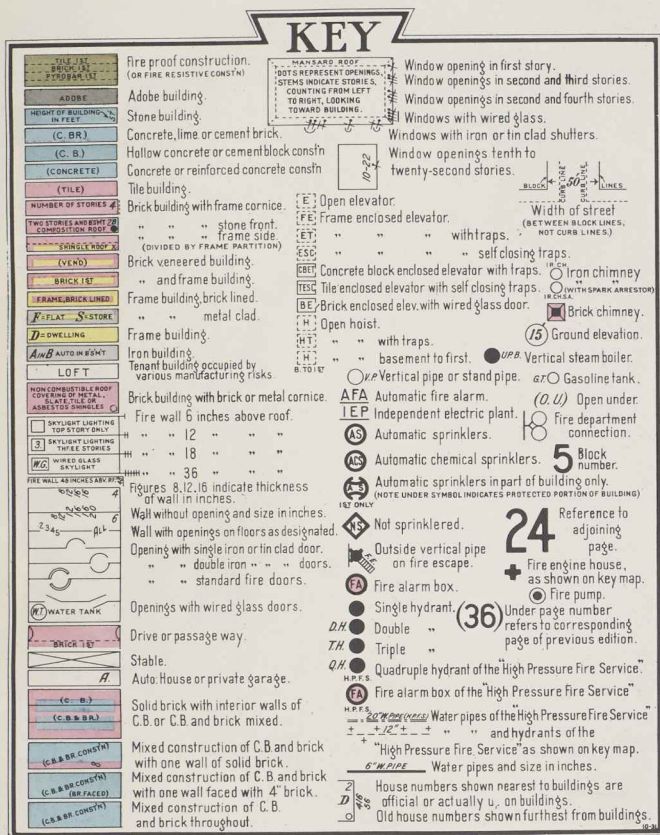 KEY
TILE 1ST
BRICK 1ST
PYROBAR 1ST
Fire proof construction.
(OR FIRE RESISTIVE CONST'N)
ADOBE
Adobe building.
HEIGHT OF BUILDING
IN FEET
Stone building.
(C. BR.)
Concrete, lime or cement brick.
(C. B.)
Hollow concrete or cement block const'n
(CONCRETE)
Concrete or reinforced concrete const'n
(TILE)
Tile building.
NUMBER OF STORIES 4
Brick building with frame cornice.
TWO STORIES AND BSMT 2B
COMPOSITION ROOF
" " " stone front.
" " " frame side.
(DIVIDED BY FRAME PARTITION)
SHINGLE ROOF X
(VEN'D)
Brick veneered building.
BRICK 1ST
" and frame building.
FRAME, BRICK LINED
Frame building, brick lined.
F=FLAT S=STORE
" " metal clad.
D=DWELLING
Frame building.
A IN B AUTO IN B'SM'T
Iron building.
LOFT
Tenant building occupied by
various manufacturing risks.
NON COMBUSTIBLE ROOF
COVERING OF METAL,
SLATE, TILE OR
ASBESTOS SHINGLES
Brick building with brick or metal cornice.
SKYLIGHT LIGHTING
TOP STORY ONLY
Fire wall 6 inches above roof.
" " 12 " " "
3. SKYLIGHT LIGHTING
THREE STORIES
" " 18 " " "
W.G. WIRED GLASS
SKYLIGHT
" " 36 " " "
FIRE WALL 48 INCHES ABV. RF.
Figures 8,12,16 indicate thickness
of wall in inches.
4
Wall without opening and size in inches.
2345 ALL 6
Wall with openings on floors as designated.
Opening with single iron or tin clad door.
" " double iron " " " doors.
" " standard fire doors.
W.T. WATER TANK
Openings with wired glass doors.
BRICK 1ST
Drive or passage way.
Stable.
A.
Auto. House or private garage.
(C. B.)
(C.B.& BR.)
Solid brick with interior walls of
C.B. or C.B. and brick mixed.
(C.B.& BR. CONST'N)
Mixed construction of C.B. and brick
with one wall of solid brick.
(C.B.& BR. CONST'N)
(BR. FACED)
Mixed construction of C.B. and brick
with one wall faced with 4" brick.
(C.B.& BR. CONST'N)
Mixed construction of C.B.
and brick throughout.
MANSARD ROOF
DOTS REPRESENT OPENINGS,
STEMS INDICATE STORIES,
COUNTING FROM LEFT
TO RIGHT, LOOKING
TOWARD BUILDING.
Window opening in first story.
Window openings in second and third stories.
Window openings in second and fourth stories.
Windows with wired glass.
Windows with iron or tin clad shutters.
10-22
Window openings tenth to
twenty-second stories.
BLOCK CURB LINE 50' CURB LINE LINES
Width of street
(BETWEEN BLOCK LINES,
NOT CURB LINES.)
E Open elevator.
FE Frame enclosed elevator.
ET " " " with traps.
ESC " " " self closing traps.
CBET Concrete block enclosed elevator with traps.
TESC Tile enclosed elevator with self closing traps.
BE Brick enclosed elev. with wired glass door.
IR. CH.
Iron chimney
(WITH SPARK ARRESTOR)
IR.CH.S.A.
Brick chimney.
H Open hoist.
HT " " with traps.
H " " basement to first.
B. TO 1ST
15 Ground elevation.
UP.B. Vertical steam boiler.
V.P Vertical pipe or stand pipe.
G.T. Gasoline tank.
AFA Automatic fire alarm.
(O. U.) Open under.
IEP Independent electric plant.
Fire department
connection.
AS Automatic sprinklers.
ACS Automatic chemical sprinklers.
5 Block
number.
AS Automatic sprinklers in part of building only.
1ST ONLY (NOTE UNDER SYMBOL INDICATES PROTECTED PORTION OF BUILDING)
NS Not sprinklered.
24 Reference to
adjoining
page.
F.E. Outside vertical pipe
on fire escape.
Fire engine house,
as shown on key map.
FA Fire alarm box.
Fire pump.
Single hydrant.
D.H. Double "
T.H. Triple "
(36) Under page number
refers to corresponding
page of previous edition.
Q.H. Quadruple hydrant of the "High Pressure Fire Service."
H.P.F.S.
FA Fire alarm box of the "High Pressure Fire Service"
H.P.F.S.
20" W.PIPE (H.P.F.S.) Water pipes of the "High Pressure Fire Service"
+ + +12" + + " " and hydrants of the
+ "High Pressure Fire Service" as shown on key map.
6" W. PIPE Water pipes and size in inches.
2
D
O
House numbers shown nearest to buildings are
official or actually u, on buildings.
Old house numbers shown furthest from buildings.
10-31